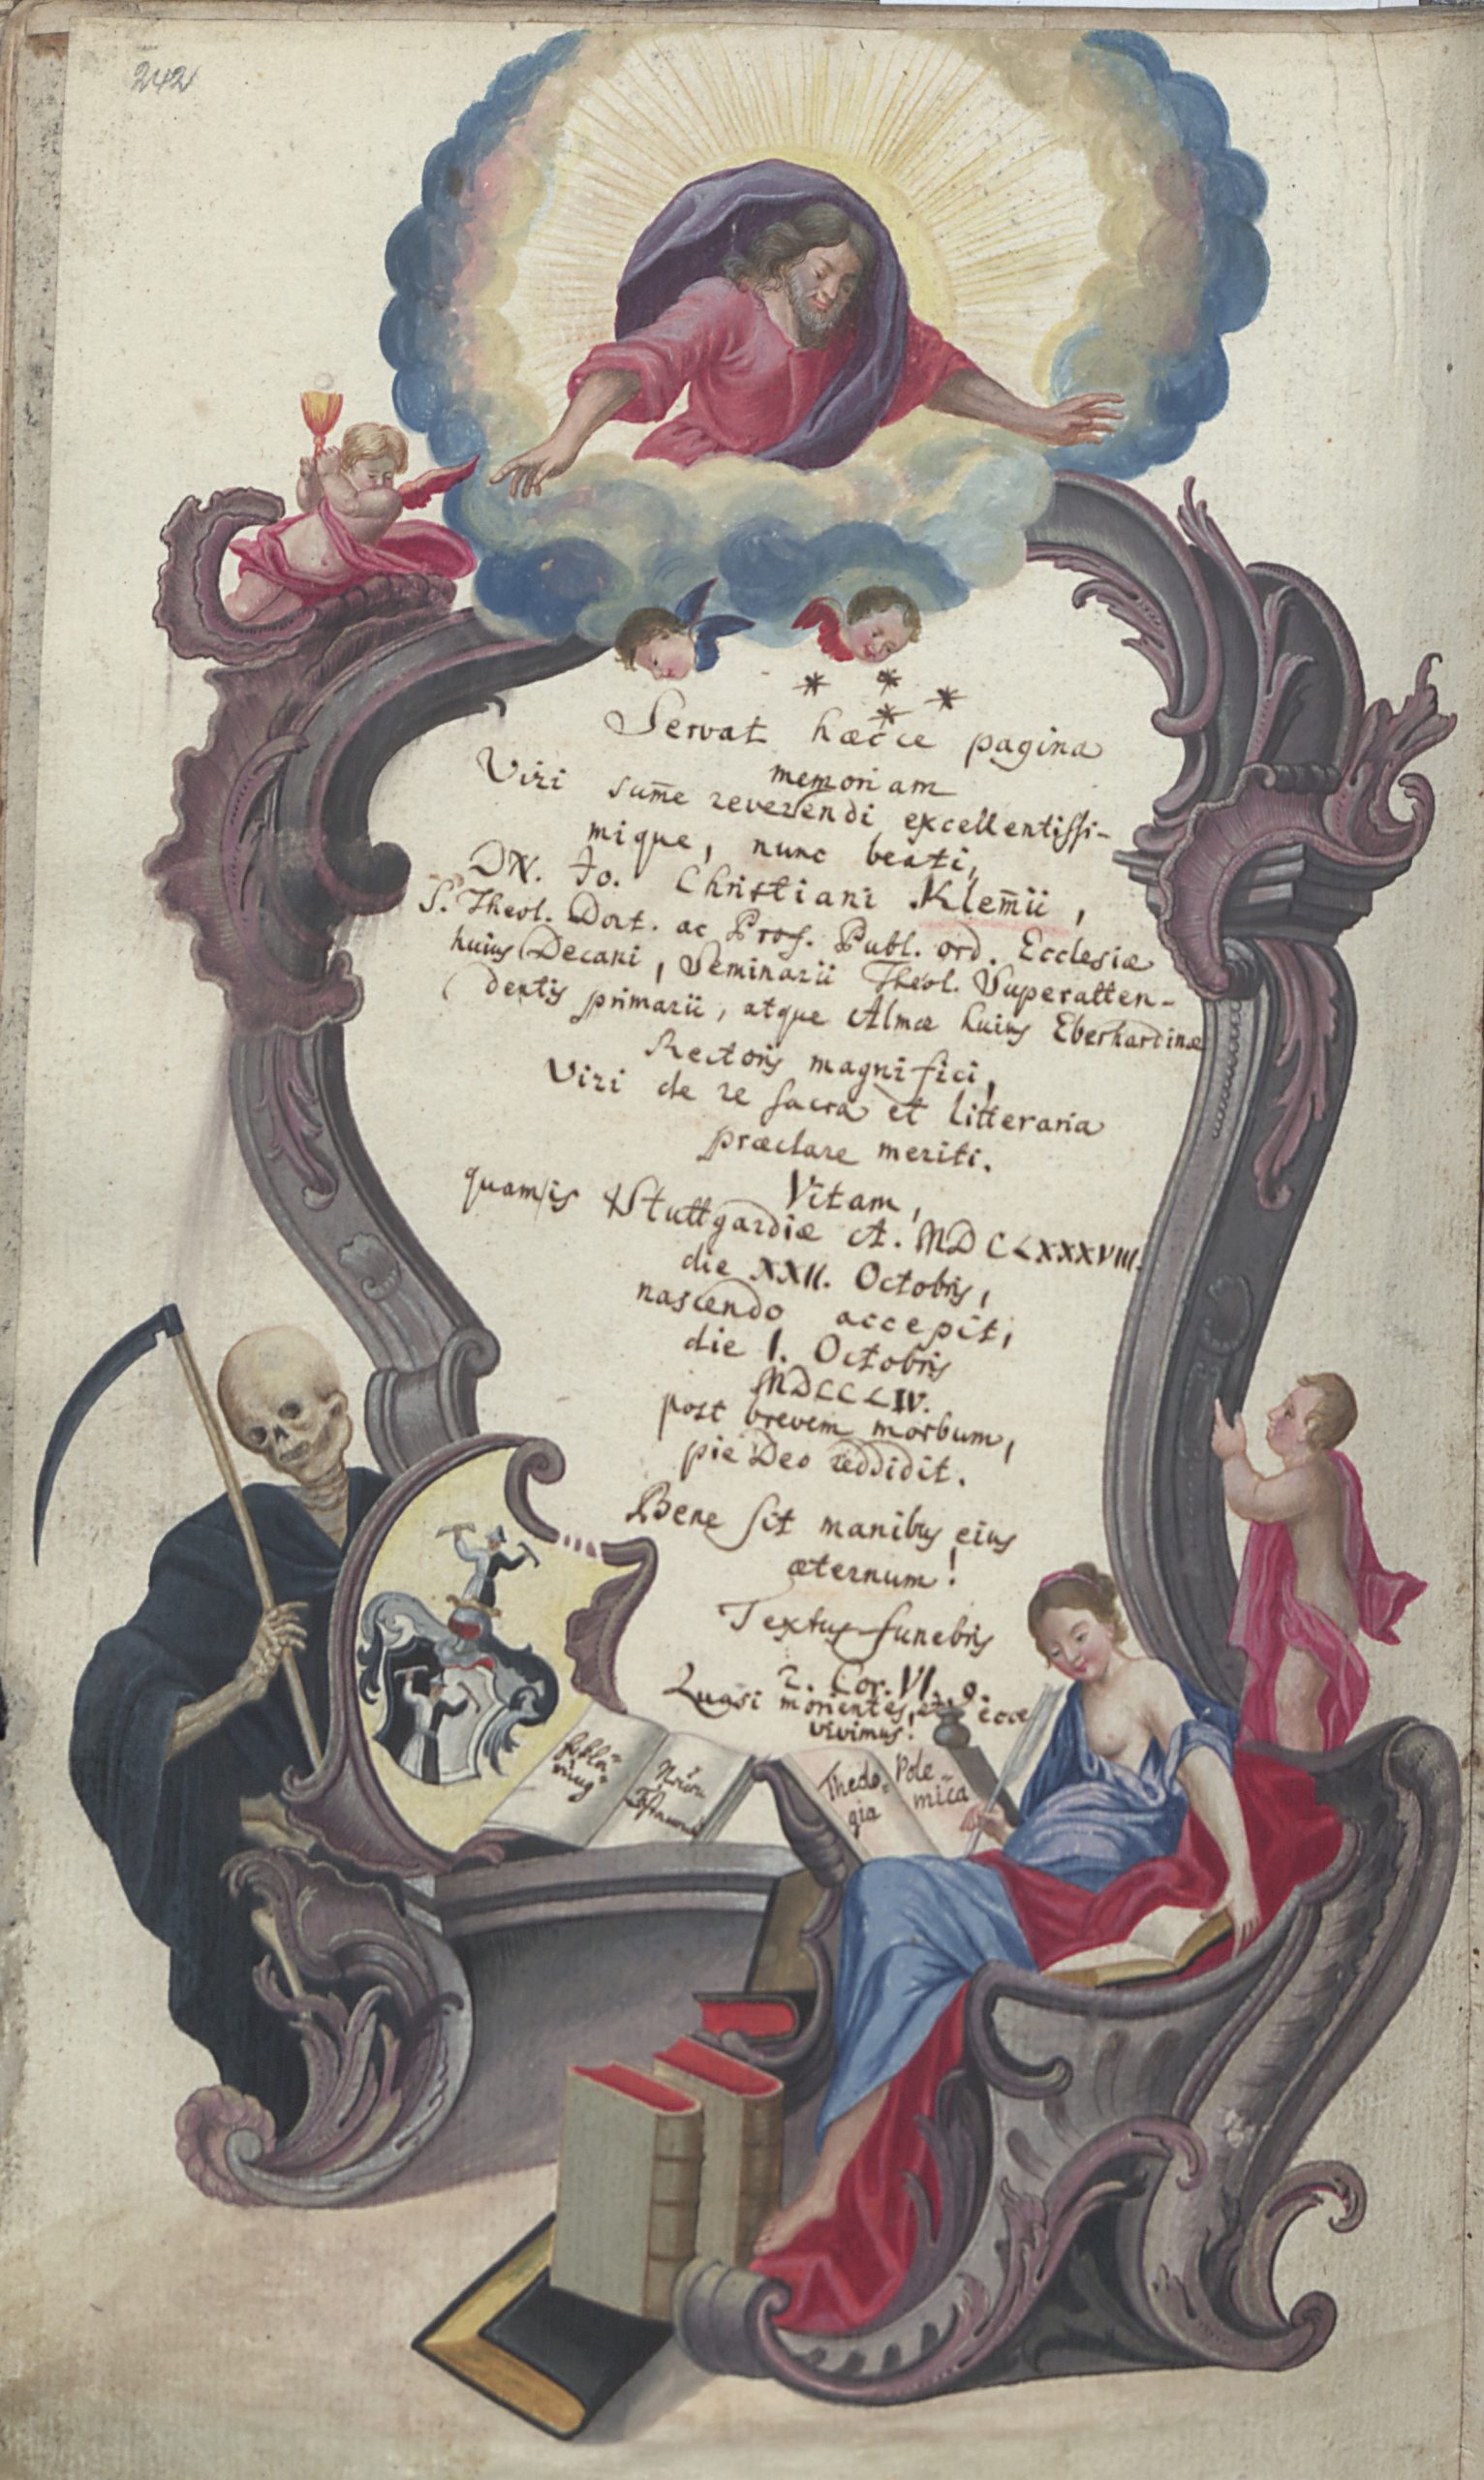 242
Servat hæcce pagina
memoriam
Viri sum̄e reverendi excellentissi-
mique, nunc beati,
DN. Jo. Christiani Klem̄ii,
S. Theol. Doct. ac Prof. Publ. ord. Ecclesiæ
huius Decani, Seminarii Theol. Superatten-
dentis primarii, atque Almæ huius Eberhardinæ
Rectoris magnifici,
Viri de re sacra et litteraria
præclare meriti.
Vitam,
quamvis Stuttgardiæ A. MDCLXXXVIII.
die XXII. Octobris,
nascendo accepit,
die I. Octobris
MDCCLIV.
post brevem morbum,
pie Deo reddidit.
Bene sit manibus eius
æternum!
Textus funebris
2. Cor. VI. 9.
Quasi morientes, et ecce
vivimus!
Theolo-
gia
Pole-
mica